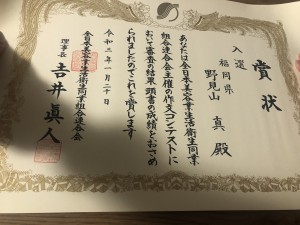 賞状
入選
福岡県
野見山 真 殿
あなたは全日本美容業生活衛生同業
組合連合会主催の作文コンテストに
おいて審査の結果頭書の成績をおさめ
られましたのでこれを賞します
令和三年一月二十日
全日本美容業生活衛生同業組合連合会
理事長 吉井眞人